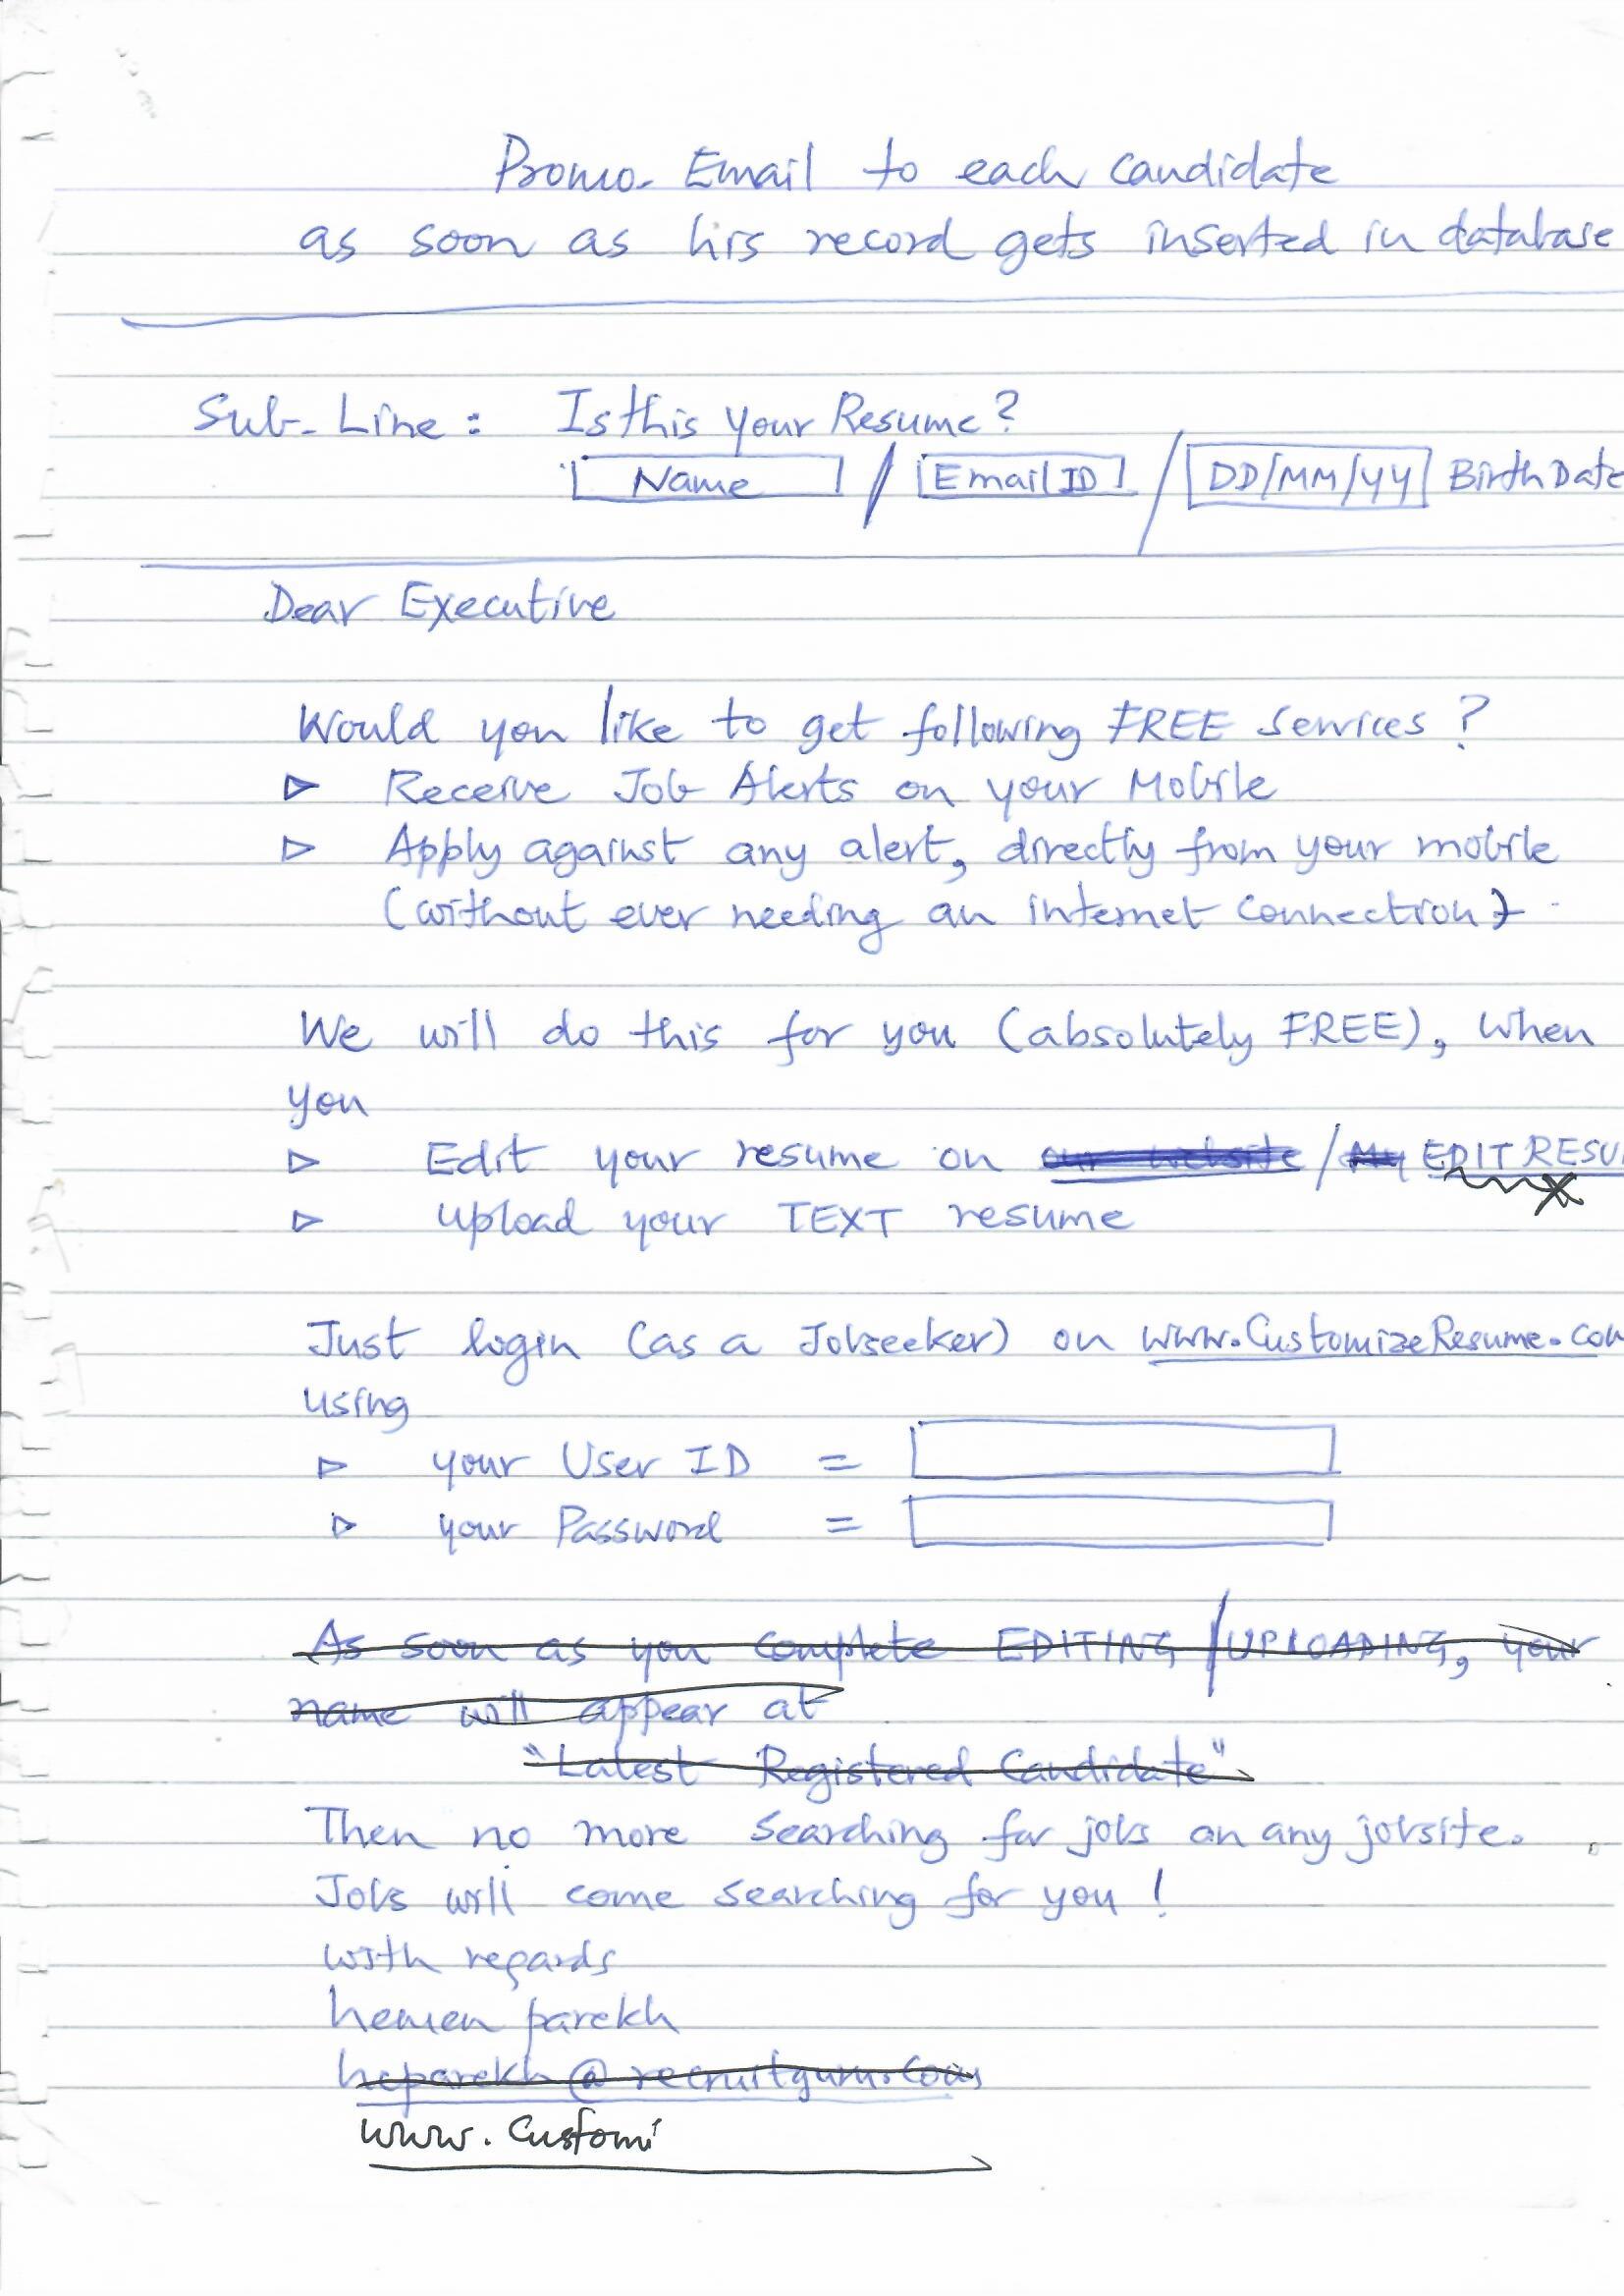 Promo-Email to each candidate
as soon as his record gets inserted in database
Sub-Line : Is this your Resume?
Name / Email ID / DD/MM/YY BirthDate
Dear Executive
Would you like to get following FREE services ?
▷ Receive Job Alerts on your Mobile
▷ Apply against any alert, directly from your mobile
(without ever needing an internet connection)
We will do this for you (absolutely FREE), when
you
▷ Edit your resume on our website / My EDIT RESU
▷ upload your TEXT resume
Just login (as a Jobseeker) on www.CustomizeResume.com
using
▷ your User ID =
▷ your Password =
As soon as you complete EDITING / UPLOADING, your
name will appear at
"Latest Registered Candidate"
Then no more searching for jobs on any jobsite.
Jobs will come searching for you !
with regards
hemen parekh
hcparekh@recruitguru.com
www.Customi